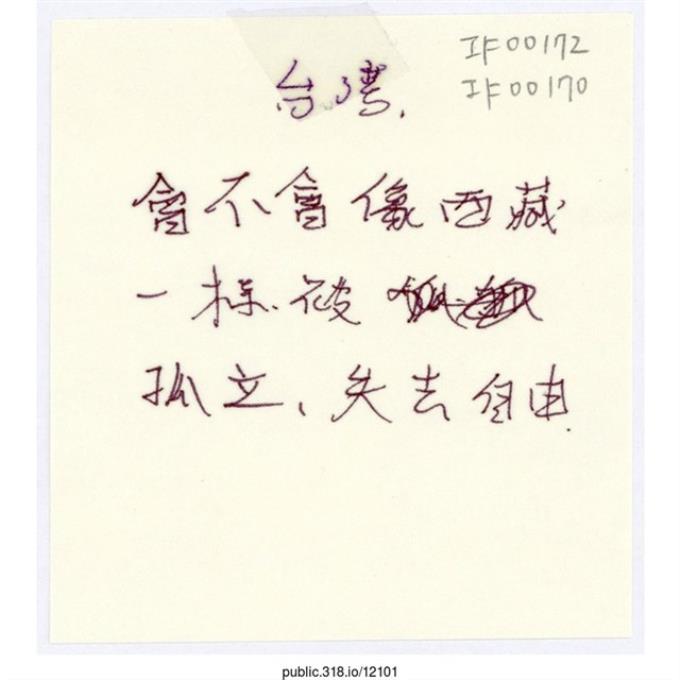 IF00172
IF00170
台湾.
會不會像西藏
一樣被
孤立、失去自由.
public.318.io/12101